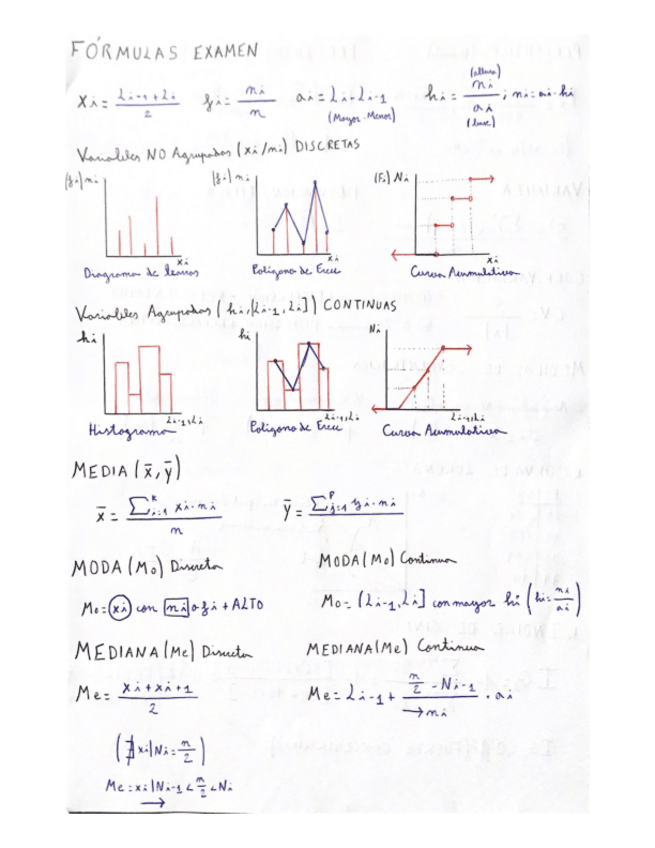 FÓRMULAS EXAMEN
xi = (Li-1 + Li)/2   fi = ni/n   ai = Li - Li-1 (Mayor - Menor)   hi = ni (altura) / ai (base) ; ni = ai · hi
Variables NO Agrupadas (xi/ni) DISCRETAS
(fi) ni   (fi) ni   (Fi) Ni
xi   xi   xi
Diagrama de barras   Polígono de Frec   Curva Acumulativa
Variables Agrupadas (hi, [Li-1, Li]) CONTINUAS
hi   hi   Ni
Li-1, Li   Li-1, Li   Li-1, Li
Histograma   Polígono de Frec   Curva Acumulativa
MEDIA (x̄, ȳ)
x̄ = Σ^k_{i=1} xi · ni / n   ȳ = Σ^p_{j=1} yj · nj
MODA (Mo) Discreta   MODA (Mo) Continua
Mo = xi con ni o fi + ALTO   Mo = (Li-1, Li] con mayor hi (hi = ni/ai)
MEDIANA (Me) Discreta   MEDIANA (Me) Continua
Me = (xi + xi+1)/2   Me = Li-1 + (n/2 - Ni-1)/→ni · ai
(∄ xi | Ni = n/2)
Me = xi | Ni-1 < n/2 < Ni
→